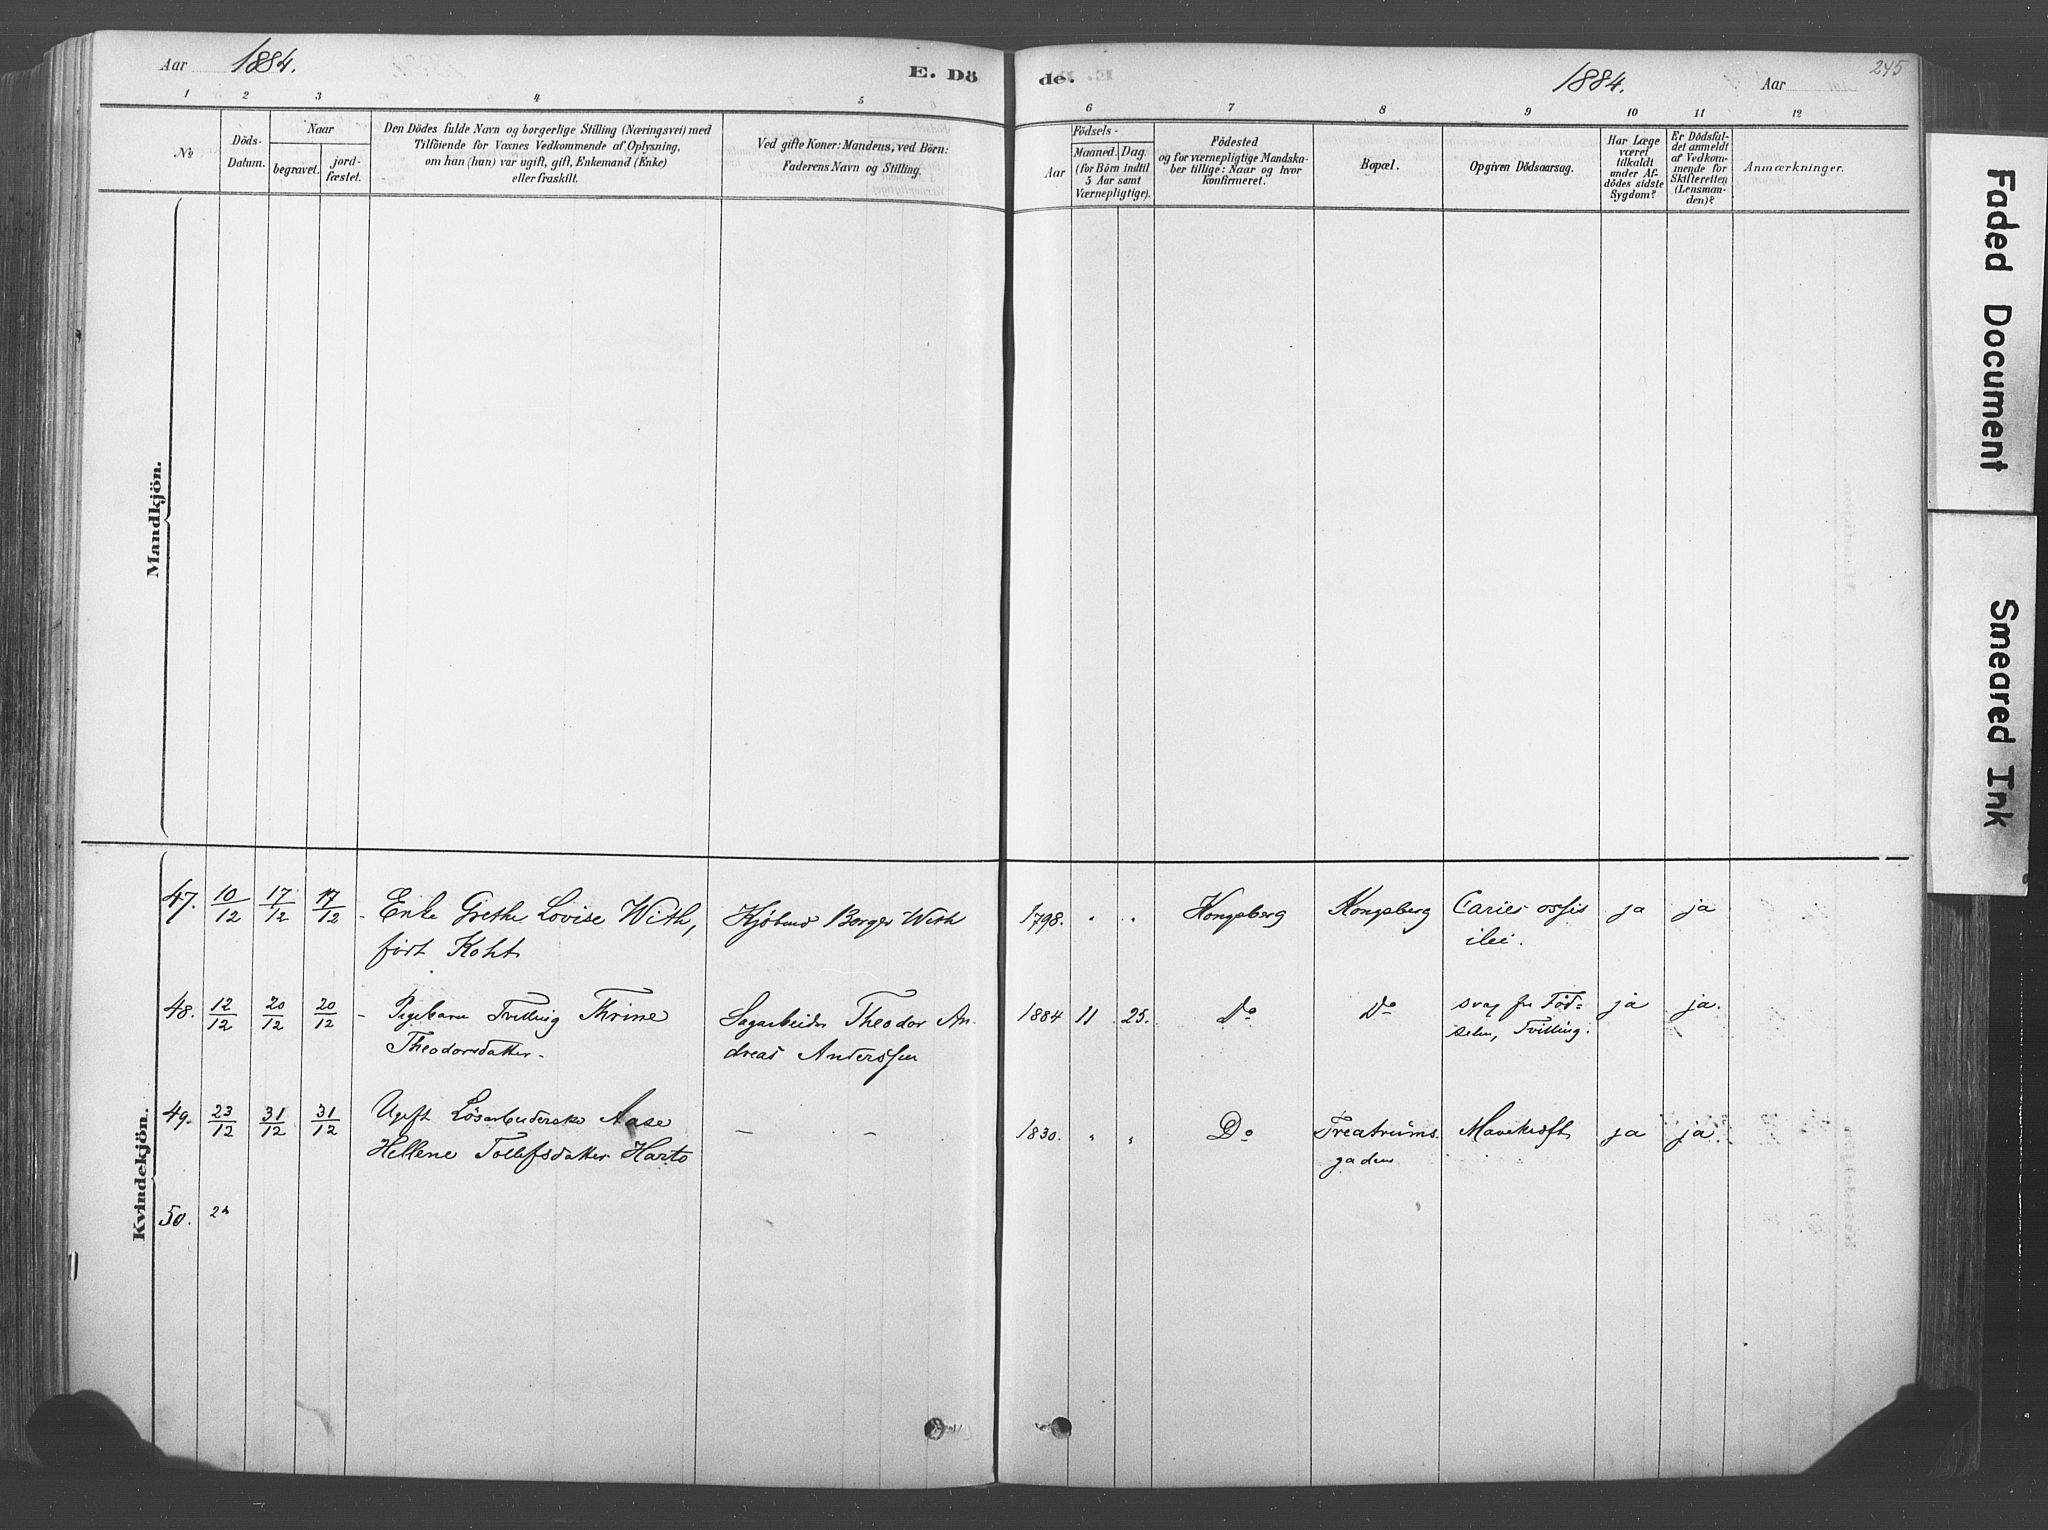 Aar 1884.
E. Dö
de.
1884. Aar
245
1 2 3 4 5
6 7 8 9 10 11 12
No
Döds-
Datum.
Naar
begravet.
jord-
fæstet.
Den Dödes fulde Navn og borgerlige Stilling (Næringsvei) med
Tilföiende for Voxnes Vedkommende af Oplysning,
om han (hun) var ugift, gift, Enkemand (Enke)
eller fraskilt.
Ved gifte Koner: Mandens, ved Börn:
Faderens Navn og Stilling.
Födsels-
Aar
Maaned.
Dag.
(for Börn indtil
5 Aar samt
Værnepligtige).
Födested
og for værnepligtige Mandska-
ber tillige: Naar og hvor
konfirmeret.
Bopæl.
Opgiven Dödsaarsag.
Har Læge
været
tilkaldt
under Af-
dödes sidste
Sygdom?
Er Dödsfal-
det anmeldt
af Vedkom-
mende for
Skifteretten
(Lensman-
den)?
Anmærkninger.
Mandkjön.
Kvindekjön.
47. 10/12 17/12 17/12 - Enke Grethe Lovise With, Kjøbmd Borger With 1798. " " Kongsberg Kongsberg Caries ossis ja ja
født Koht ilei.
48. 12/12 20/12 20/12 - Pigebarn Tvilling Thrine Sagarbeider Theodor An- 1884 11 25. Do Do svag fr Fød- ja ja.
Theodorsdatter. dreas Anderssen selen, Tvilling.
49. 23/12 31/12 31/12 Ugift Løsarbeiderske Aase - - 1830. " " Do Treatrums- Mavekræft ja ja.
Hellene Tollefsdatter Harto gaden
50. 2
Faded Document
Smeared Ink